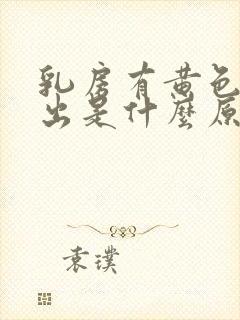 乳房有黄色
出是什麼原
袁璞